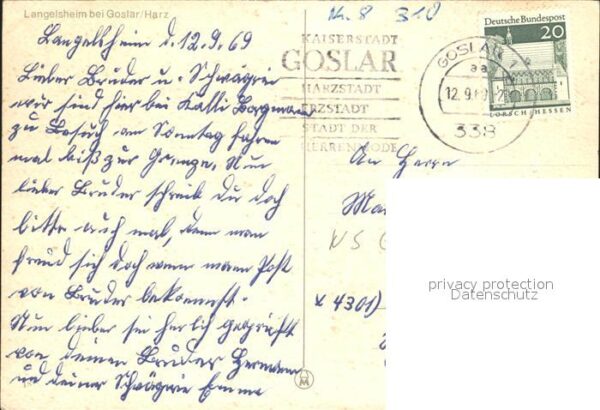 Langelsheim bei Goslar/Harz
14. 8 310
Langelsheim d. 12.9.69
Lieber Bruder u. Schwägrin
wir sind hier bei Kalli Borgmann
zu Besuch am Sonntag fahren
mal biß zur Grenze, Nun
lieber Bruder schreib du doch
bitte auch mal, denn man
freud sich doch wenn mann Post
von Bruder bekommt.
Nun lieber sei herlich gegrüßt
von deinen Bruder Hermann
und deiner Schwägrin Emma
KAISERSTADT
GOSLAR
HARZSTADT
ERZSTADT
STADT DER
HERRENMODE
GOSLAR 1
aa
12.9.69
338
Deutsche Bundespost
20
LORSCH/HESSEN
An Herrn
Ma
4301)
privacy protection
Datenschutz